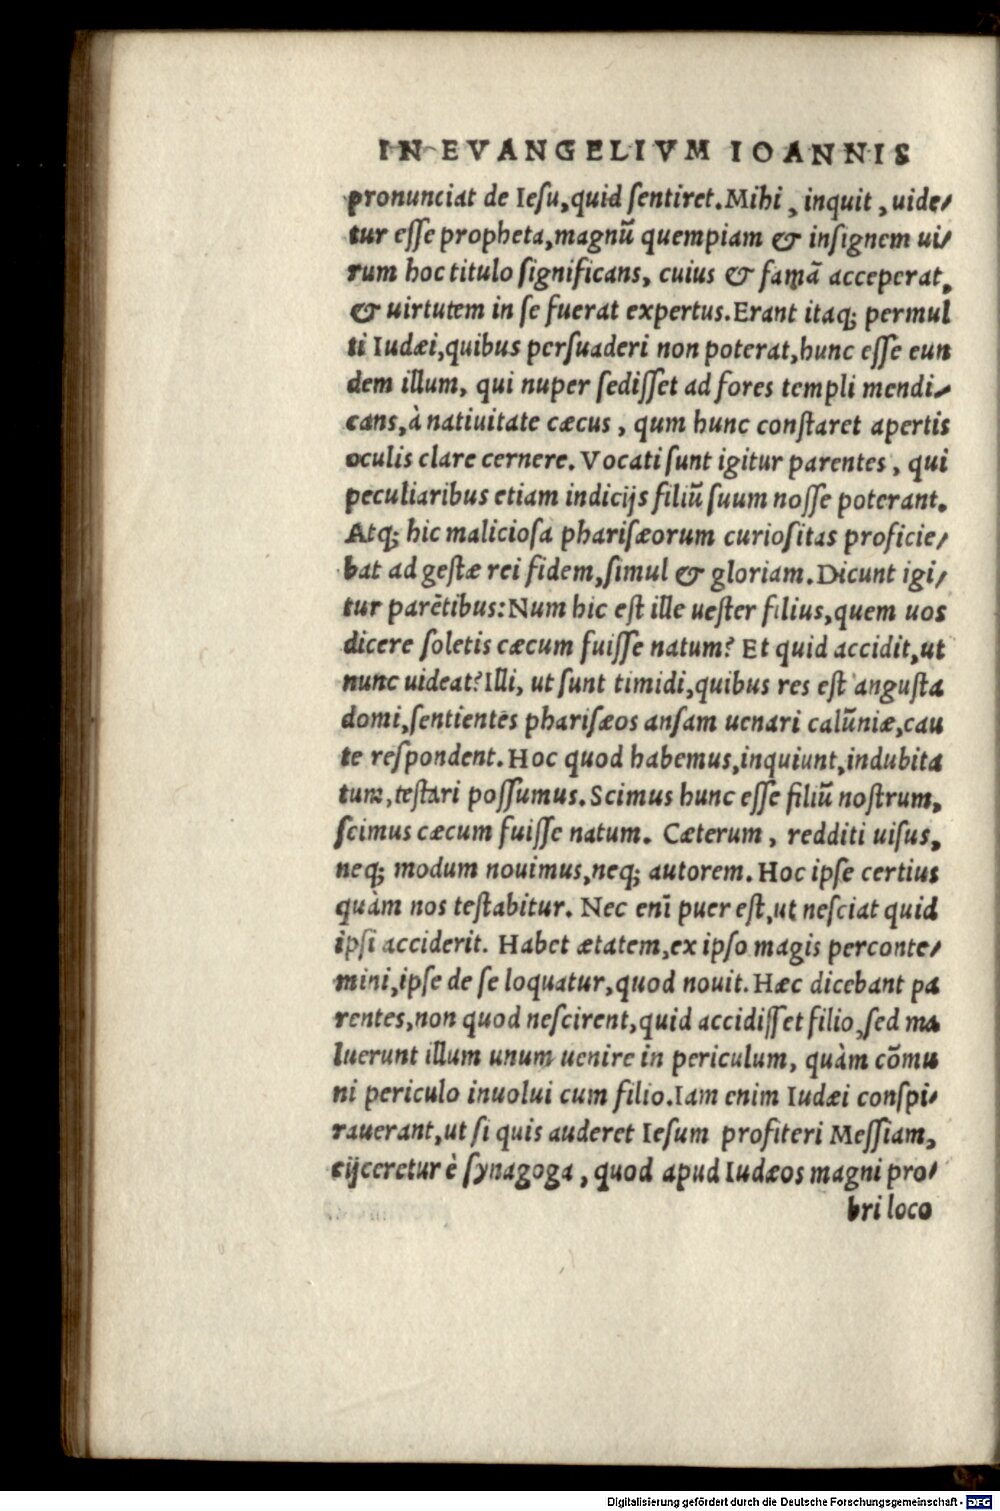 IN EVANGELIVM IOANNIS
pronunciat de Iesu,quid sentiret.Mihi , inquit , uide/
tur esse propheta,magnũ quempiam & insignem ui/
rum hoc titulo significans, cuius & famã acceperat,
& uirtutem in se fuerat expertus.Erant itaq; permul
ti Iudæi,quibus persuaderi non poterat,hunc esse eun
dem illum, qui nuper sedisset ad fores templi mendi/
cans,à natiuitate cæcus , qum hunc constaret apertis
oculis clare cernere. Vocati sunt igitur parentes , qui
peculiaribus etiam indicijs filiũ suum nosse poterant.
Atq; hic maliciosa pharisæorum curiositas proficie/
bat ad gestæ rei fidem,simul & gloriam.Dicunt igi/
tur parẽtibus:Num hic est ille uester filius,quem uos
dicere soletis cæcum fuisse natum? Et quid accidit,ut
nunc uideat?Illi, ut sunt timidi,quibus res est angusta
domi,sentientes pharisæos ansam uenari calũniæ,cau
te respondent. Hoc quod habemus,inquiunt,indubita
tum,testari possumus. Scimus hunc esse filiũ nostrum,
scimus cæcum fuisse natum. Cæterum , redditi uisus,
neq; modum nouimus,neq; autorem. Hoc ipse certius
quàm nos testabitur. Nec enĩ puer est,ut nesciat quid
ipsi acciderit. Habet ætatem,ex ipso magis perconte/
mini,ipse de se loquatur,quod nouit. Hæc dicebant pa
rentes,non quod nescirent,quid accidisset filio,sed ma
luerunt illum unum uenire in periculum, quàm cõmu
ni periculo inuolui cum filio.Iam enim Iudæi conspi/
rauerant,ut si quis auderet Iesum profiteri Messiam,
eijceretur è synagoga , quod apud Iudæos magni pro/
bri loco
Digitalisierung gefördert durch die Deutsche Forschungsgemeinschaft - DFG